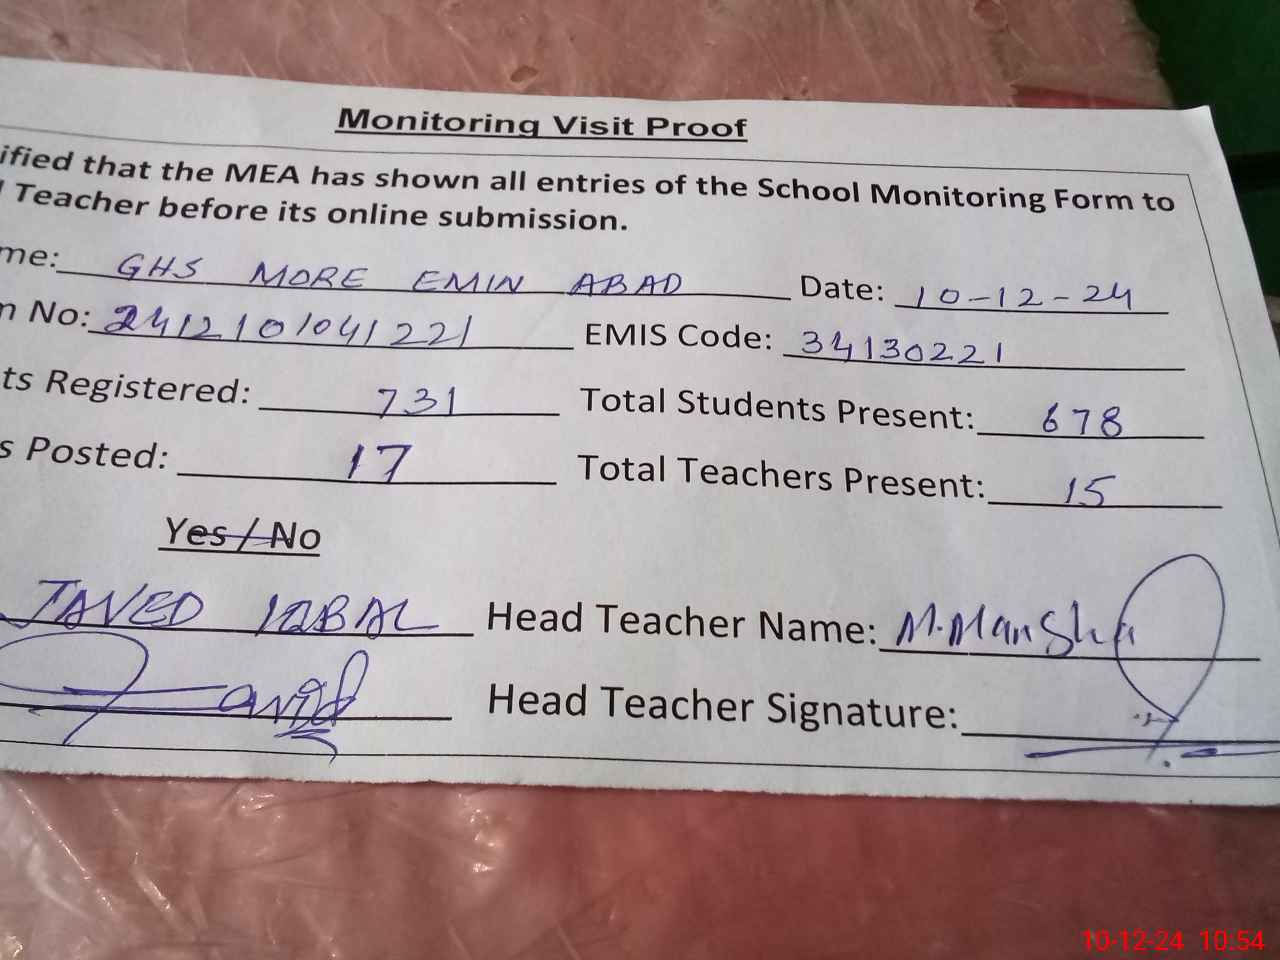 Monitoring Visit Proof
ified that the MEA has shown all entries of the School Monitoring Form to
Teacher before its online submission.
me: GHS MORE EMIN ABAD Date: 10-12-24
No: 2412101041221 EMIS Code: 34130221
ts Registered: 731 Total Students Present: 678
s Posted: 17 Total Teachers Present: 15
Yes / No
JAVED IQBAL Head Teacher Name: M.Mansha
Javid Head Teacher Signature:
10-12-24 10:54